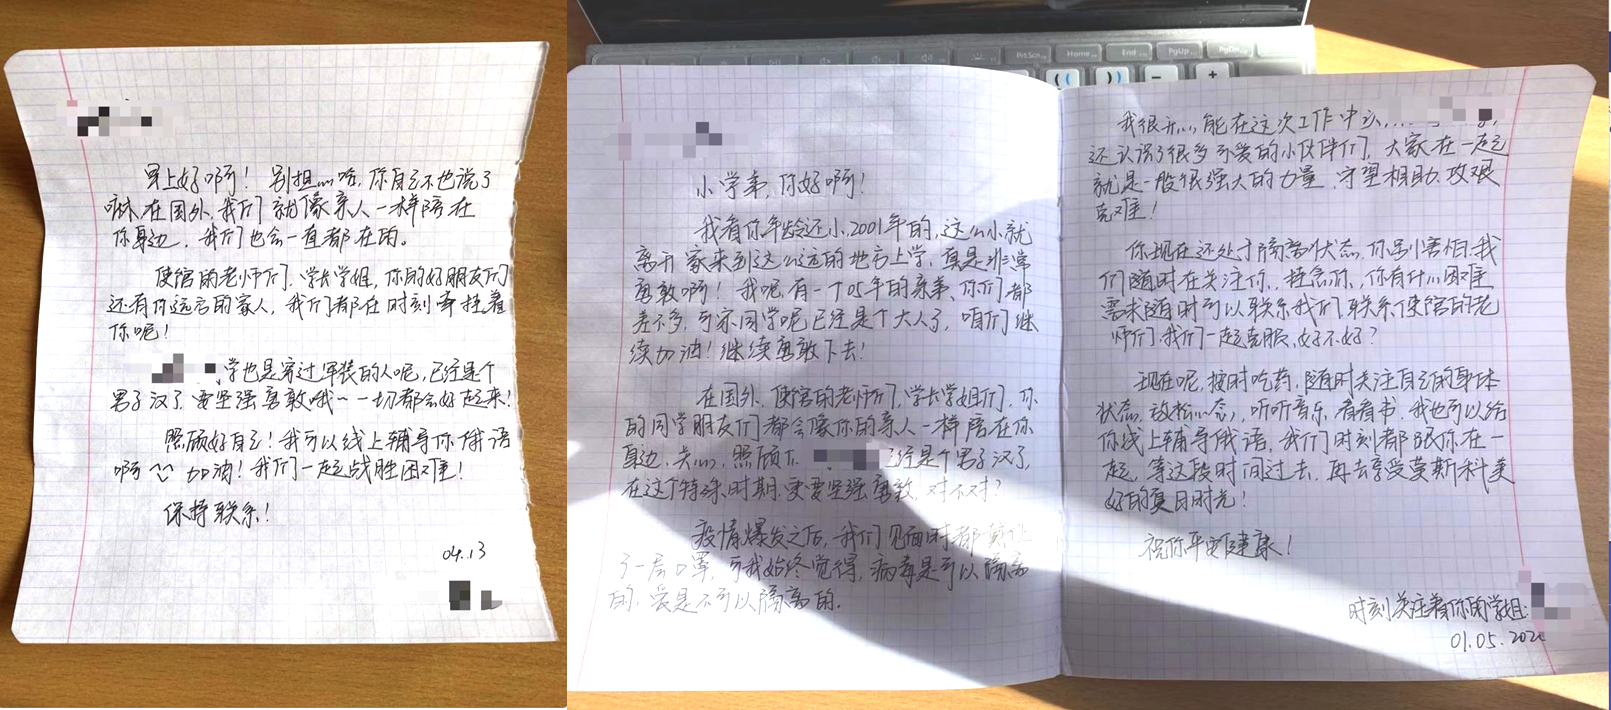 早上好啊！别担心哈，你自己不也说了
嘛，在国外，我们就像亲人一样陪在
你身边，我们也会一直都在的。
使馆的老师们，学长学姐，你的好朋友们
还有你远方的家人，我们都在时刻牵挂着
你呢！
学也是穿过军装的人呢，已经是个
男子汉了，要坚强勇敢哦~一切都会好起来！
照顾好自己！我可以线上辅导你俄语
啊 加油！我们一起战胜困难！
保持联系！
04.13
小学弟，你好啊！
我看你年龄还小，2001年的，这么小就
离开家来到这么远的地方上学，真是非常
勇敢啊！我呢，有一个05年的亲弟，你们都
差不多，可家同学呢已经是个大人了，咱们继
续加油！继续勇敢下去！
在国外，使馆的老师们，学长学姐们，你
的同学朋友们都会像你的亲人一样陪在你
身边，关心，照顾你 已经是个男子汉了，
在这个特殊时期，更要坚强勇敢，对不对？
疫情爆发之后，我们见面时都戴上
了一层口罩，可我始终觉得，病毒是可以隔离
的，爱是不可以隔离的。
我很开心，能在这次工作中认
还认识了很多可爱的小伙伴们，大家在一起
就是一股很强大的力量，守望相助，攻艰
克难！
你现在还处于隔离状态，你别害怕，我
们随时在关注你，挂念你，你有什么困难
需求随时可以联系我们，联系使馆的老
师们，我们一起克服，好不好？
现在呢，按时吃药，随时关注自己的身体
状态，放松心态，听听音乐，看看书，我也可以给
你线上辅导俄语，我们时刻都跟你在一
起，等这段时间过去，再去享受莫斯科美
好的夏日时光！
祝你平安健康！
时刻关注着你的学姐：
01.05.2020
PrtScn
Home
End
PgUp
PgDn